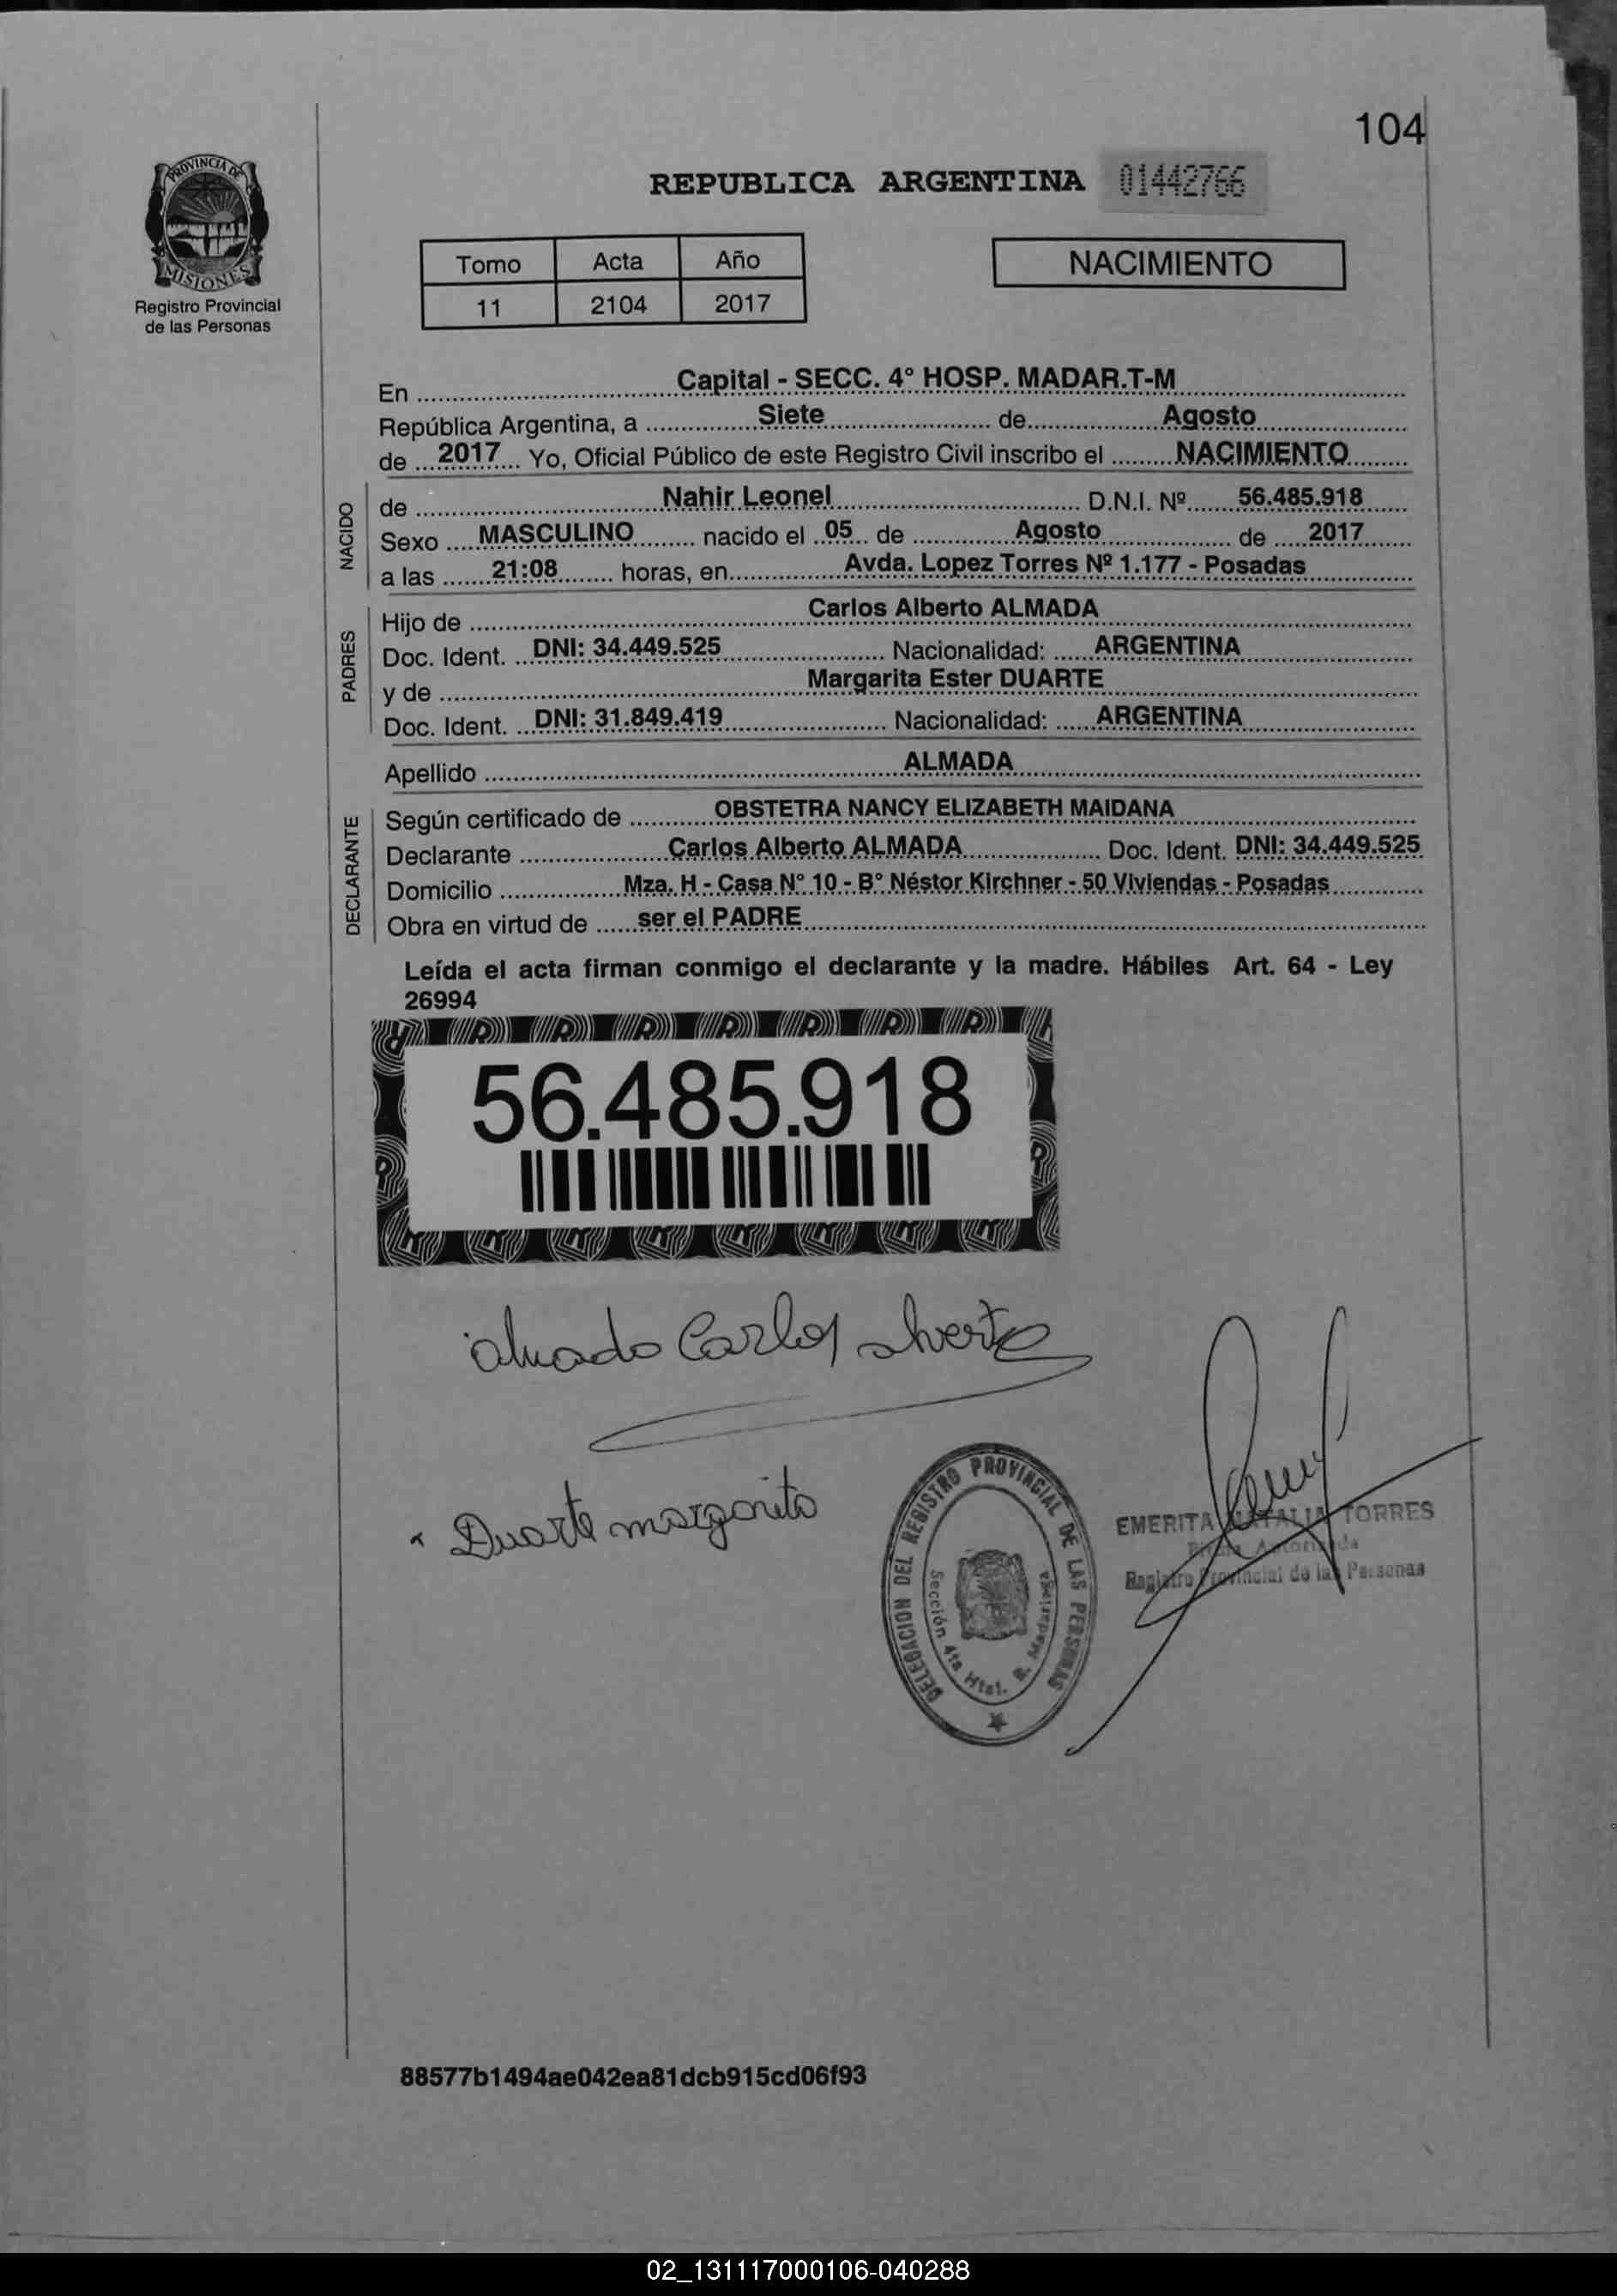 104
PROVINCIA DE
MISIONES
Registro Provincial
de las Personas
REPUBLICA ARGENTINA 01442766
Tomo Acta Año
11 2104 2017
NACIMIENTO
En Capital - SECC. 4° HOSP. MADAR.T-M
República Argentina, a Siete de Agosto
de 2017 Yo, Oficial Público de este Registro Civil inscribo el NACIMIENTO
NACIDO
de Nahir Leonel D.N.I. Nº 56.485.918
Sexo MASCULINO nacido el 05 de Agosto de 2017
a las 21:08 horas, en Avda. Lopez Torres Nº 1.177 - Posadas
PADRES
Hijo de Carlos Alberto ALMADA
Doc. Ident. DNI: 34.449.525 Nacionalidad: ARGENTINA
y de Margarita Ester DUARTE
Doc. Ident. DNI: 31.849.419 Nacionalidad: ARGENTINA
Apellido ALMADA
DECLARANTE
Según certificado de OBSTETRA NANCY ELIZABETH MAIDANA
Declarante Carlos Alberto ALMADA Doc. Ident. DNI: 34.449.525
Domicilio Mza. H - Casa N° 10 - B° Néstor Kirchner - 50 Viviendas - Posadas
Obra en virtud de ser el PADRE
Leída el acta firman conmigo el declarante y la madre. Hábiles Art. 64 - Ley
26994
56.485.918
almada Carlos alverto
Duarte margarita
DELEGACION DEL REGISTRO PROVINCIAL DE LAS PERSONAS
Sección 4ta Htal. R. Madariaga
EMERITA NATALIA TORRES
Registro Provincial de las Personas
88577b1494ae042ea81dcb915cd06f93
02_131117000106-040288